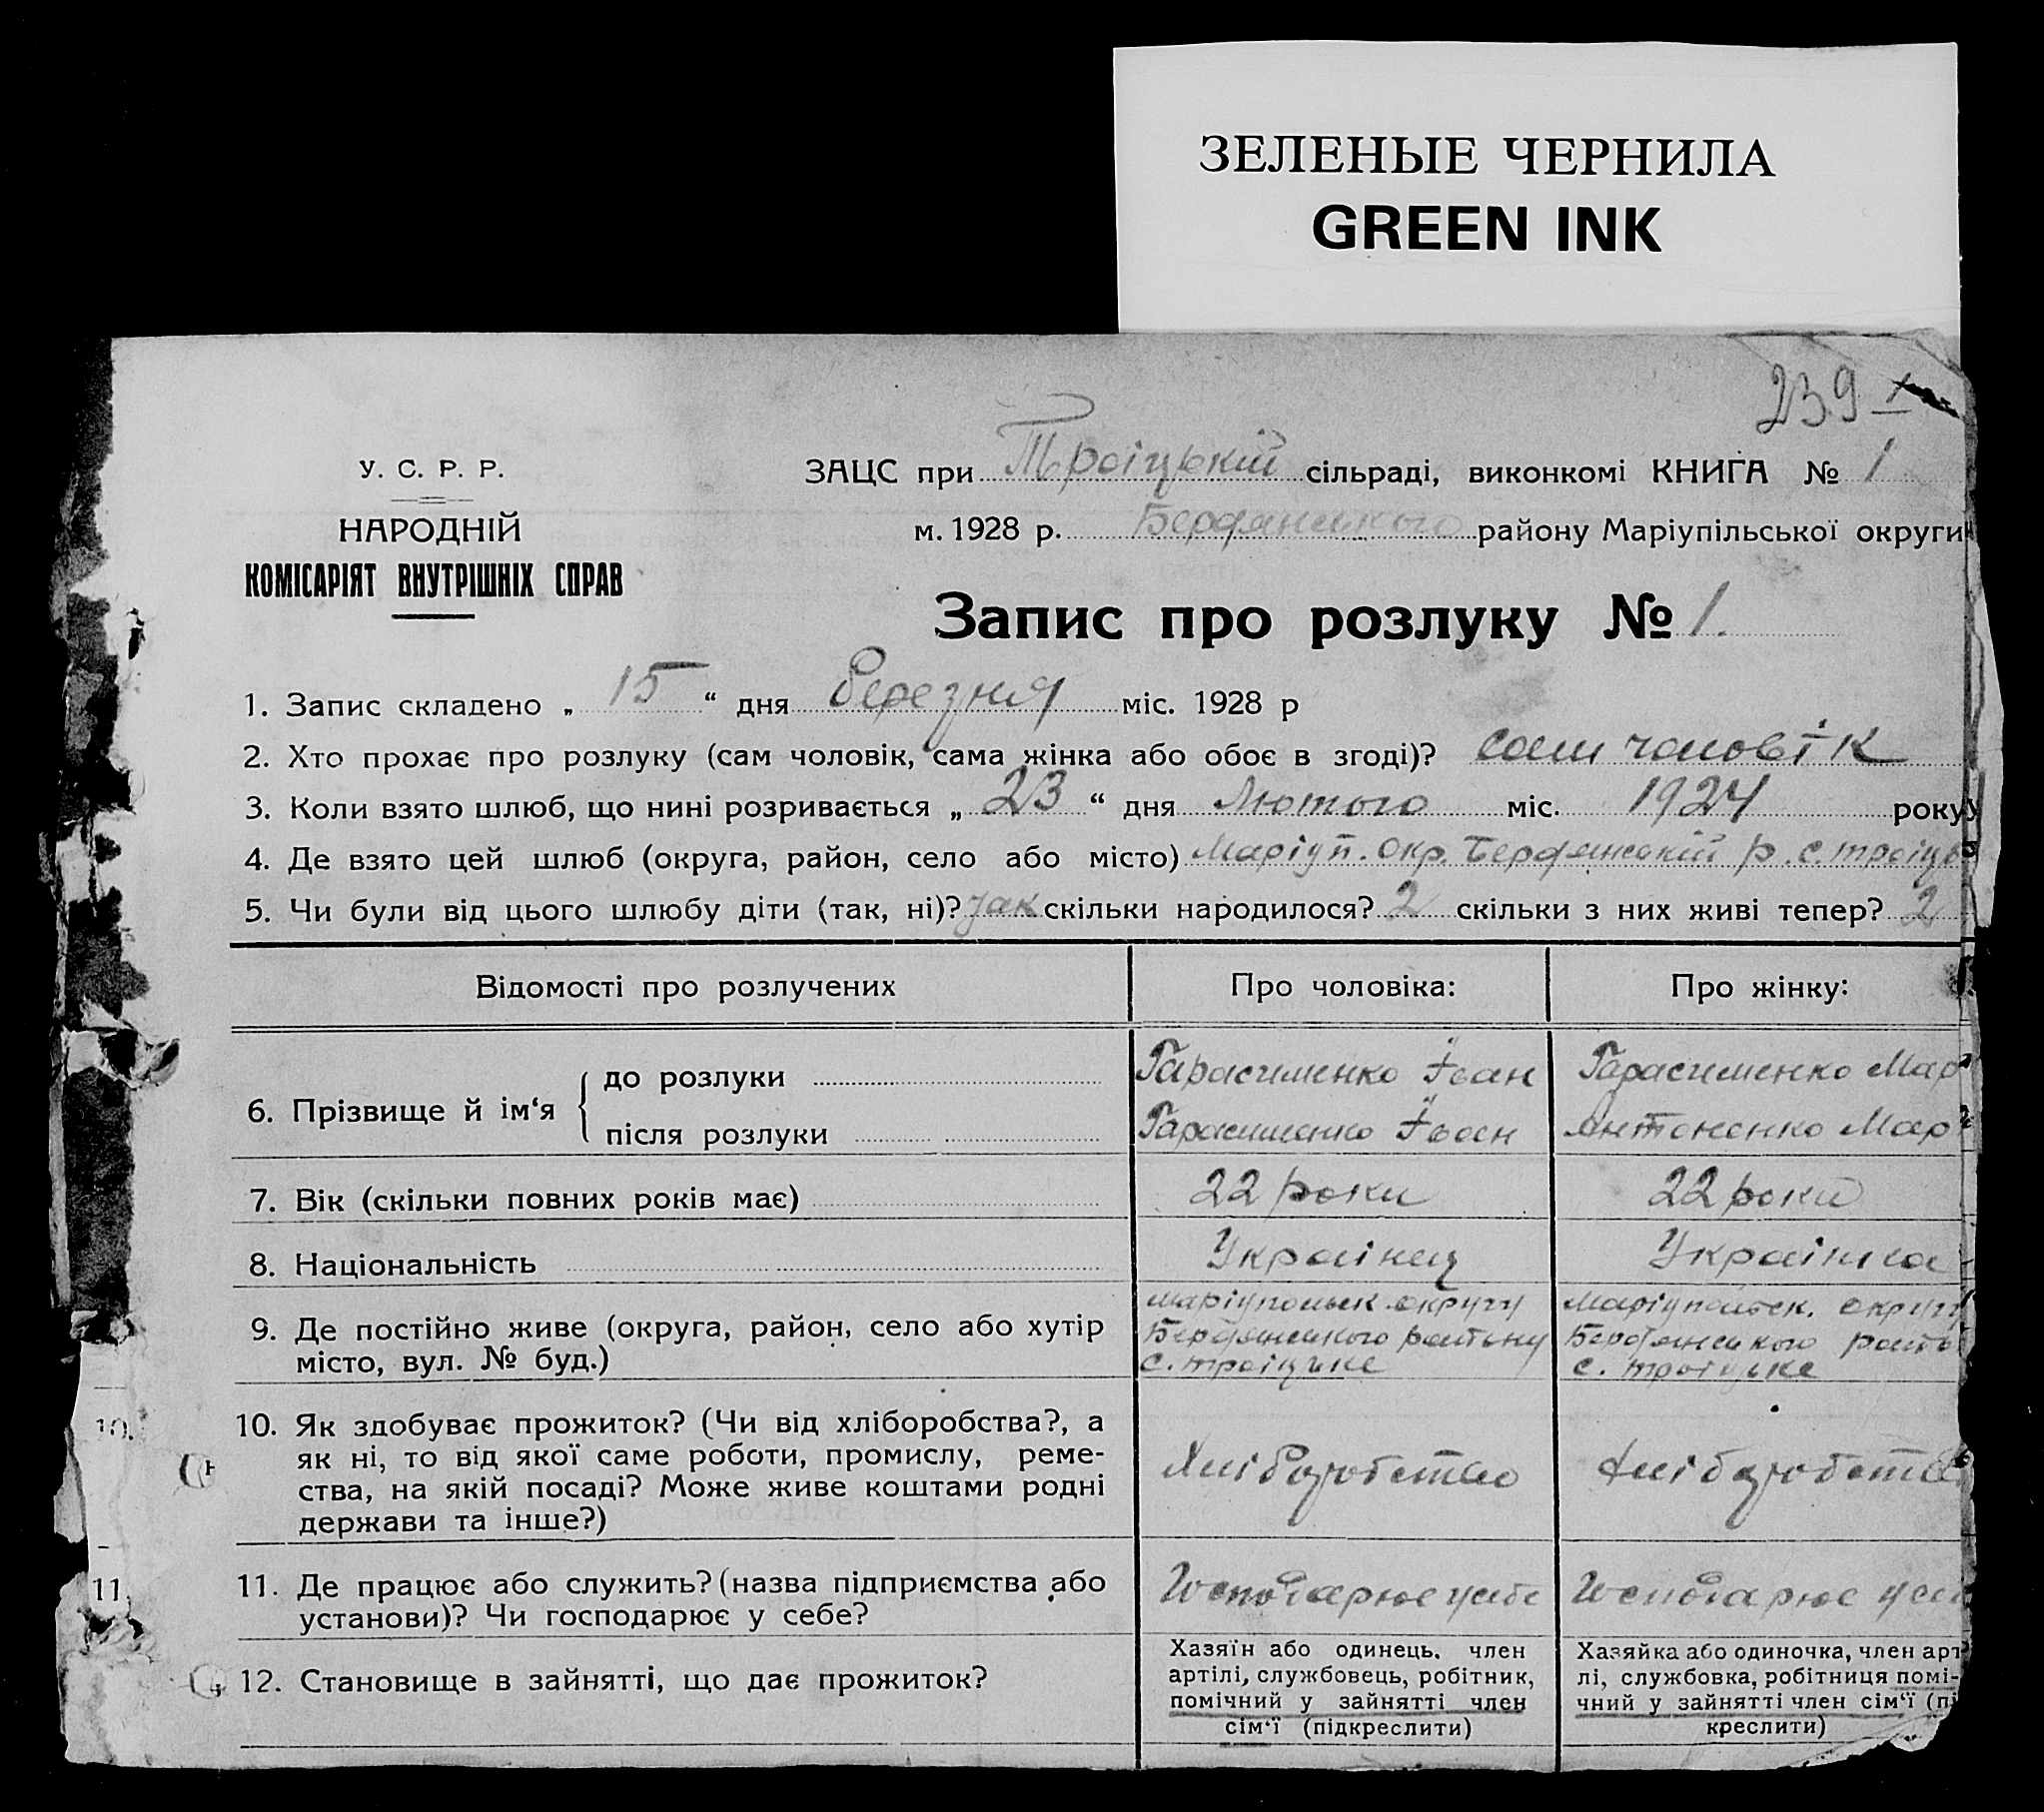 ЗЕЛЕНЫЕ ЧЕРНИЛА
GREEN INK
239
У. С. Р. Р.
НАРОДНІЙ
КОМІСАРІЯТ ВНУТРІШНІХ СПРАВ
ЗАЦС при Троіцькій сільраді, виконкомі КНИГА № 1
м. 1928 р. Бердянського району Маріупільської округи
Запис про розлуку № 1.
1. Запис складено „ 15 “ дня Березня міс. 1928 р
2. Хто прохає про розлуку (сам чоловік, сама жінка або обоє в згоді)? сам чоловік
3. Коли взято шлюб, що нині розривається „ 23 “ дня Лютого міс. 1924 року
4. Де взято цей шлюб (округа, район, село або місто) Маріуп. окр. Бердянській р. с. троіцьк
5. Чи були від цього шлюбу діти (так, ні)? так скільки народилося? 2 скільки з них живі тепер? 2
Відомості про розлучених
Про чоловіка:
Про жінку:
6. Прізвище й ім‘я
до розлуки
Гарасименко Іван
Гарасименко Мар
після розлуки
Гарасименко Іван
Антоненко Мар
7. Вік (скільки повних років має)
22 роки
22 роки
8. Національність
Украінец
Украінка
9. Де постійно живе (округа, район, село або хутір
місто, вул. № буд.)
Маріупольск. округу
Бердянського
с. троіцьке
Маріупольск. округу
Бердянського
с. троіцьке
10. Як здобуває прожиток? (Чи від хліборобства?, а
як ні, то від якої саме роботи, промислу, реме-
ства, на якій посаді? Може живе коштами родні
держави та інше?)
Хліборобство
Хліборобство
11. Де працює або служить? (назва підприємства або
установи)? Чи господарює у себе?
Господарює у себе
Господарює у се
12. Становище в зайнятті, що дає прожиток?
Хазяїн або одинець. член
артілі, службовець, робітник,
помічний у зайнятті член
сім‘ї (підкреслити)
Хазяйка або одиночка, член арт
лі, службовка, робітниця помі-
чний у зайнятті член сім‘ї (пі
креслити)
10.
11